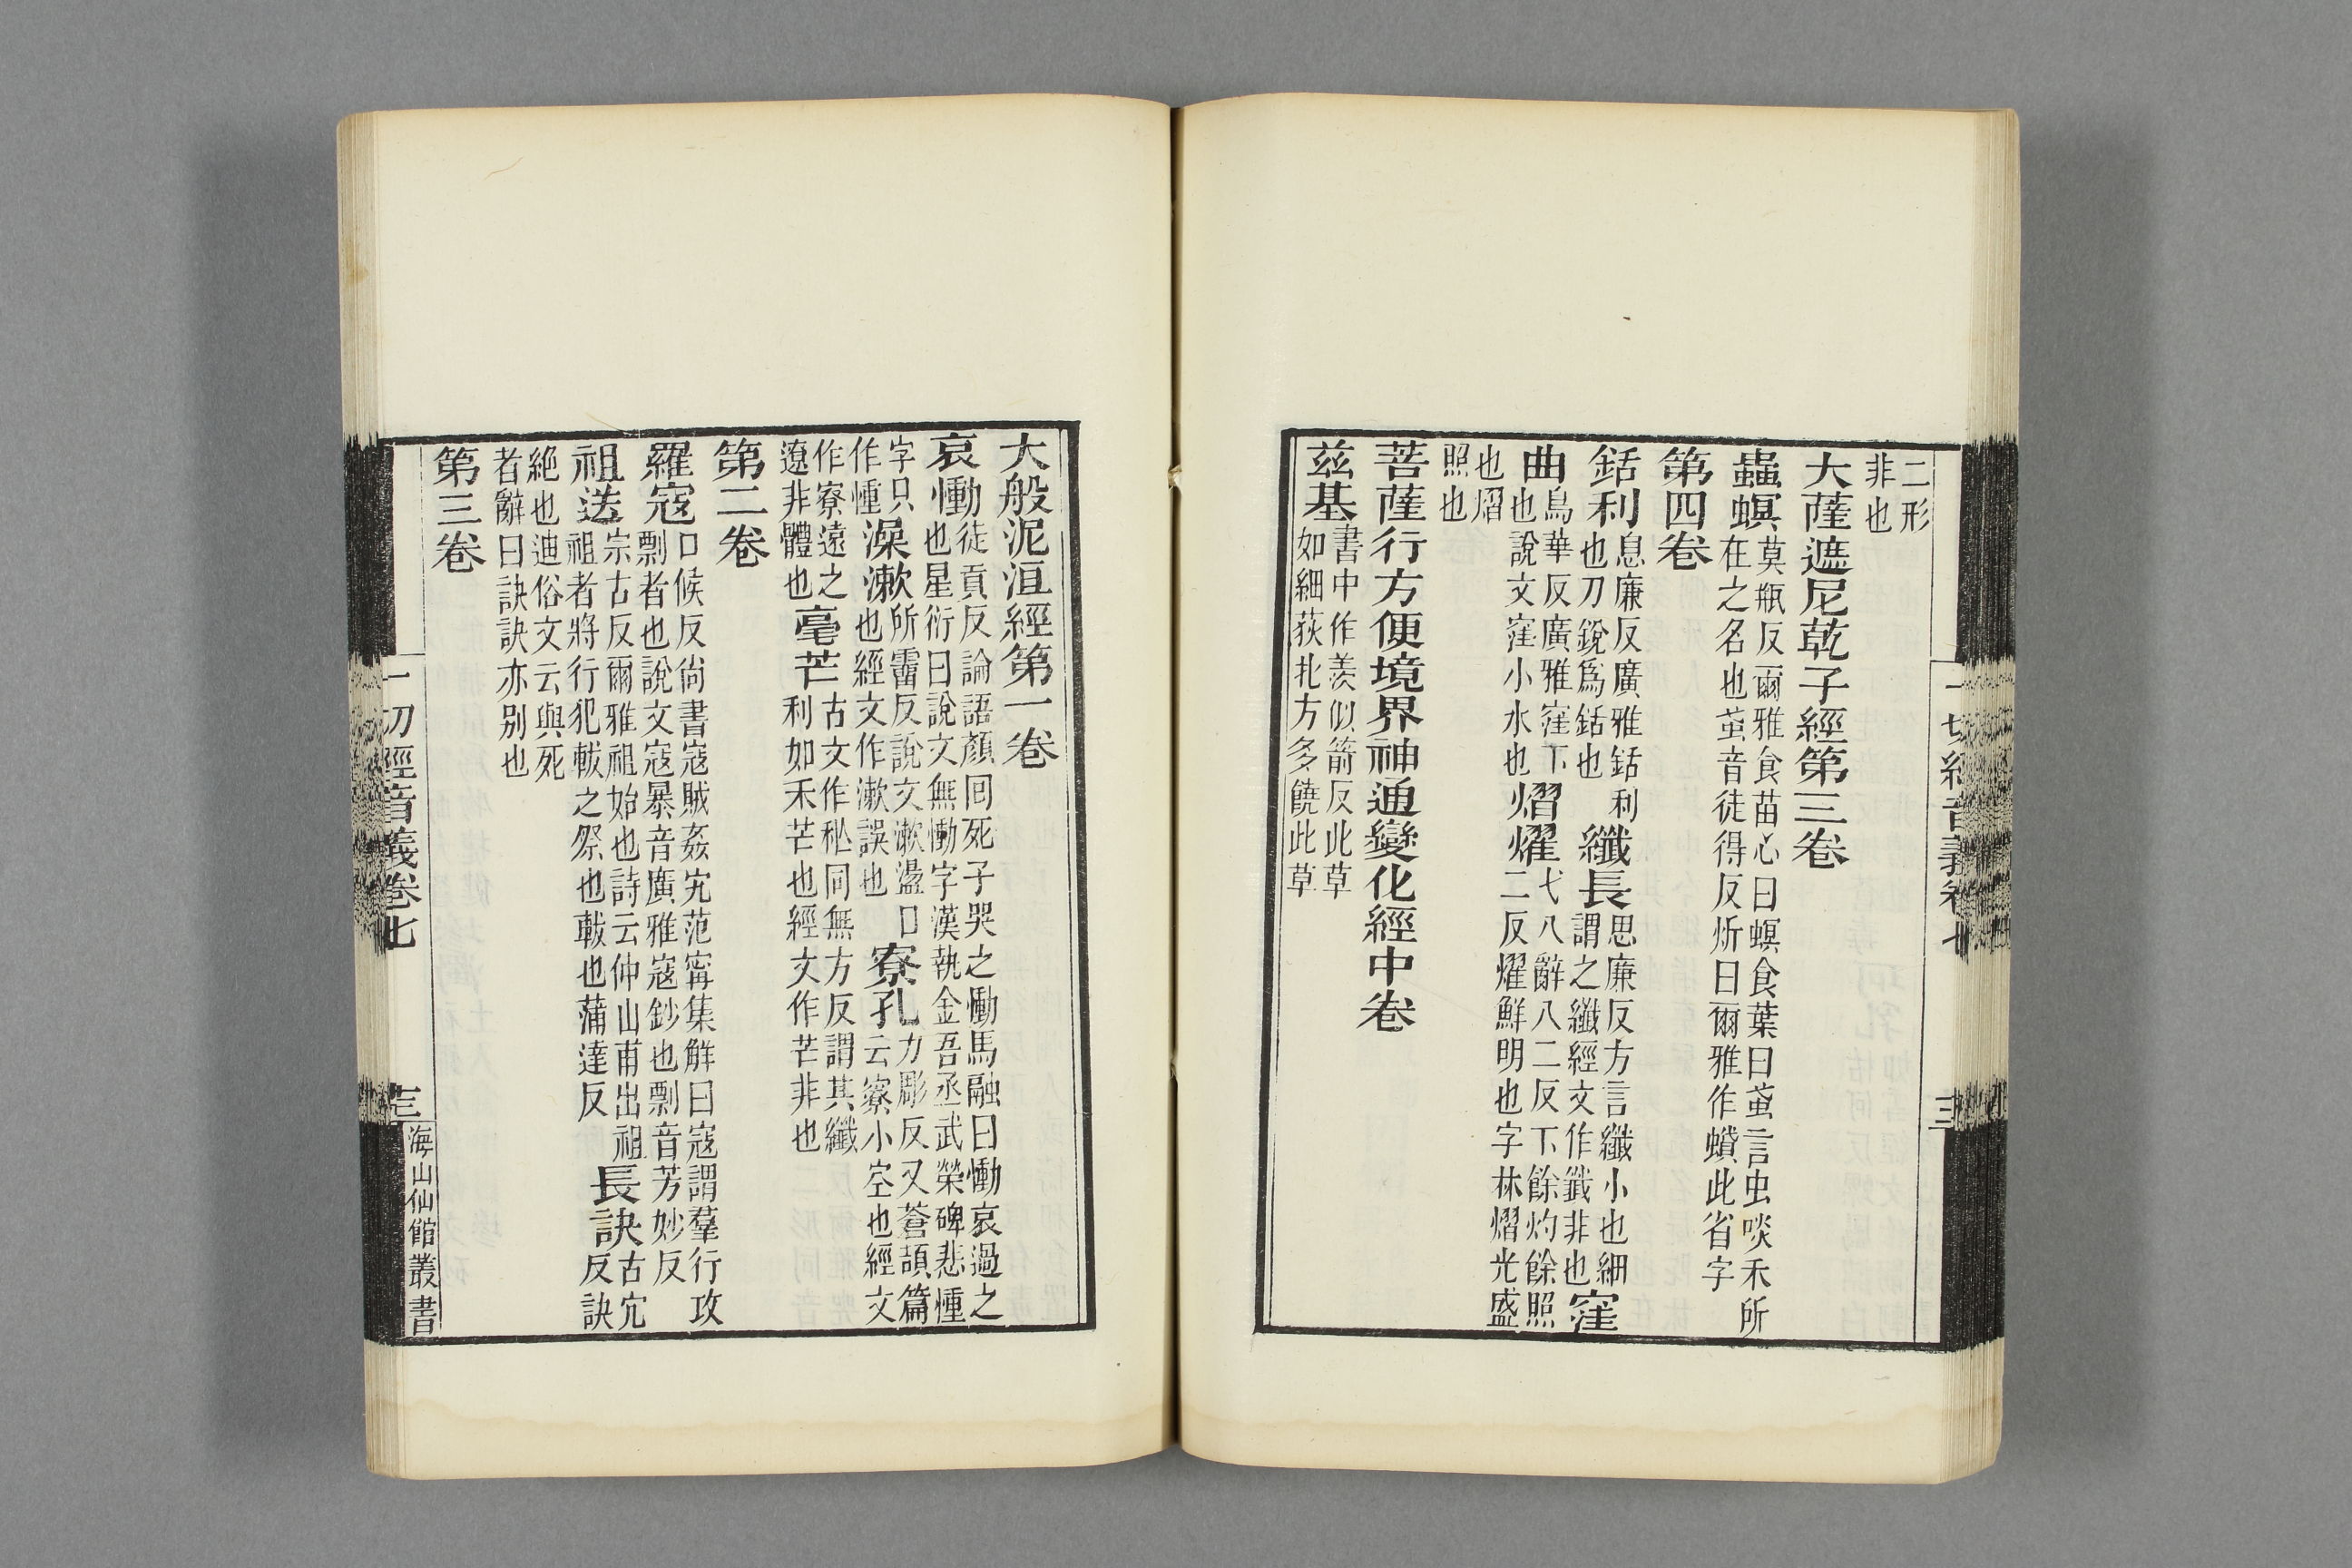 二形
非也
大薩遮尼乾子經第三卷
蟲螟莫瓶反爾雅食苗心曰螟食葉曰䘌言虫啖禾所
在之名也䘌音徒得反炘曰爾雅作蟘此省字
第四卷
銛利息廉反廣雅銛利
也刀銳爲銛也
纖長思廉反方言纖小也細
謂之纖經文作籤非也
窪
曲烏華反廣雅窪下
也說文窪小水也
熠燿弋八辭八二反下餘灼餘照
二反燿鮮明也字林熠光盛
也熠
照也
菩薩行方便境界神通變化經中卷
兹基書中作羨似箭反此草
如細荻北方多饒此草
大般泥洹經第一卷
哀慟徒貢反論語顏回死子哭之慟馬融曰慟哀過之
也星衍曰說文無慟字漢執金吾丞武榮碑悲㥁
字只
作㥁
澡漱所霤反說文漱盪口
也經文作漱誤也
寮孔力彫反又蒼頡篇
云寮小空也經文
作寮遠之
遼非體也
毫芒古文作秐同無方反謂其纖
利如禾芒也經文作芒非也
第二卷
羅寇口候反尙書寇賊姦宄范甯集解曰寇謂羣行攻
剽者也說文寇暴音廣雅寇鈔也剽音芳妙反
祖送宗古反爾雅祖始也詩云仲山甫出祖
祖者將行犯軷之祭也軷也蒲達反
長訣古宂
反訣
絕也迪俗文云與死
者辭曰訣訣亦别也
第三卷
一切經音義卷七
海山仙館叢書